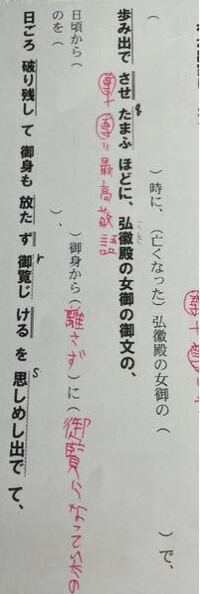 （　　　）時に、（亡くなった）弘徽殿の女御の（　　　）で、
歩み出でさせたまふほどに、弘徽殿の女御の御文の、
q
こきでん
尊＋尊＝最高敬語
日頃から（　　　）、（　　　）御身から（離さず）に（御覧になっていたの
のを（
日ごろ破り残して御身も放たず御覧じけるを思しめし出でて、
r
s